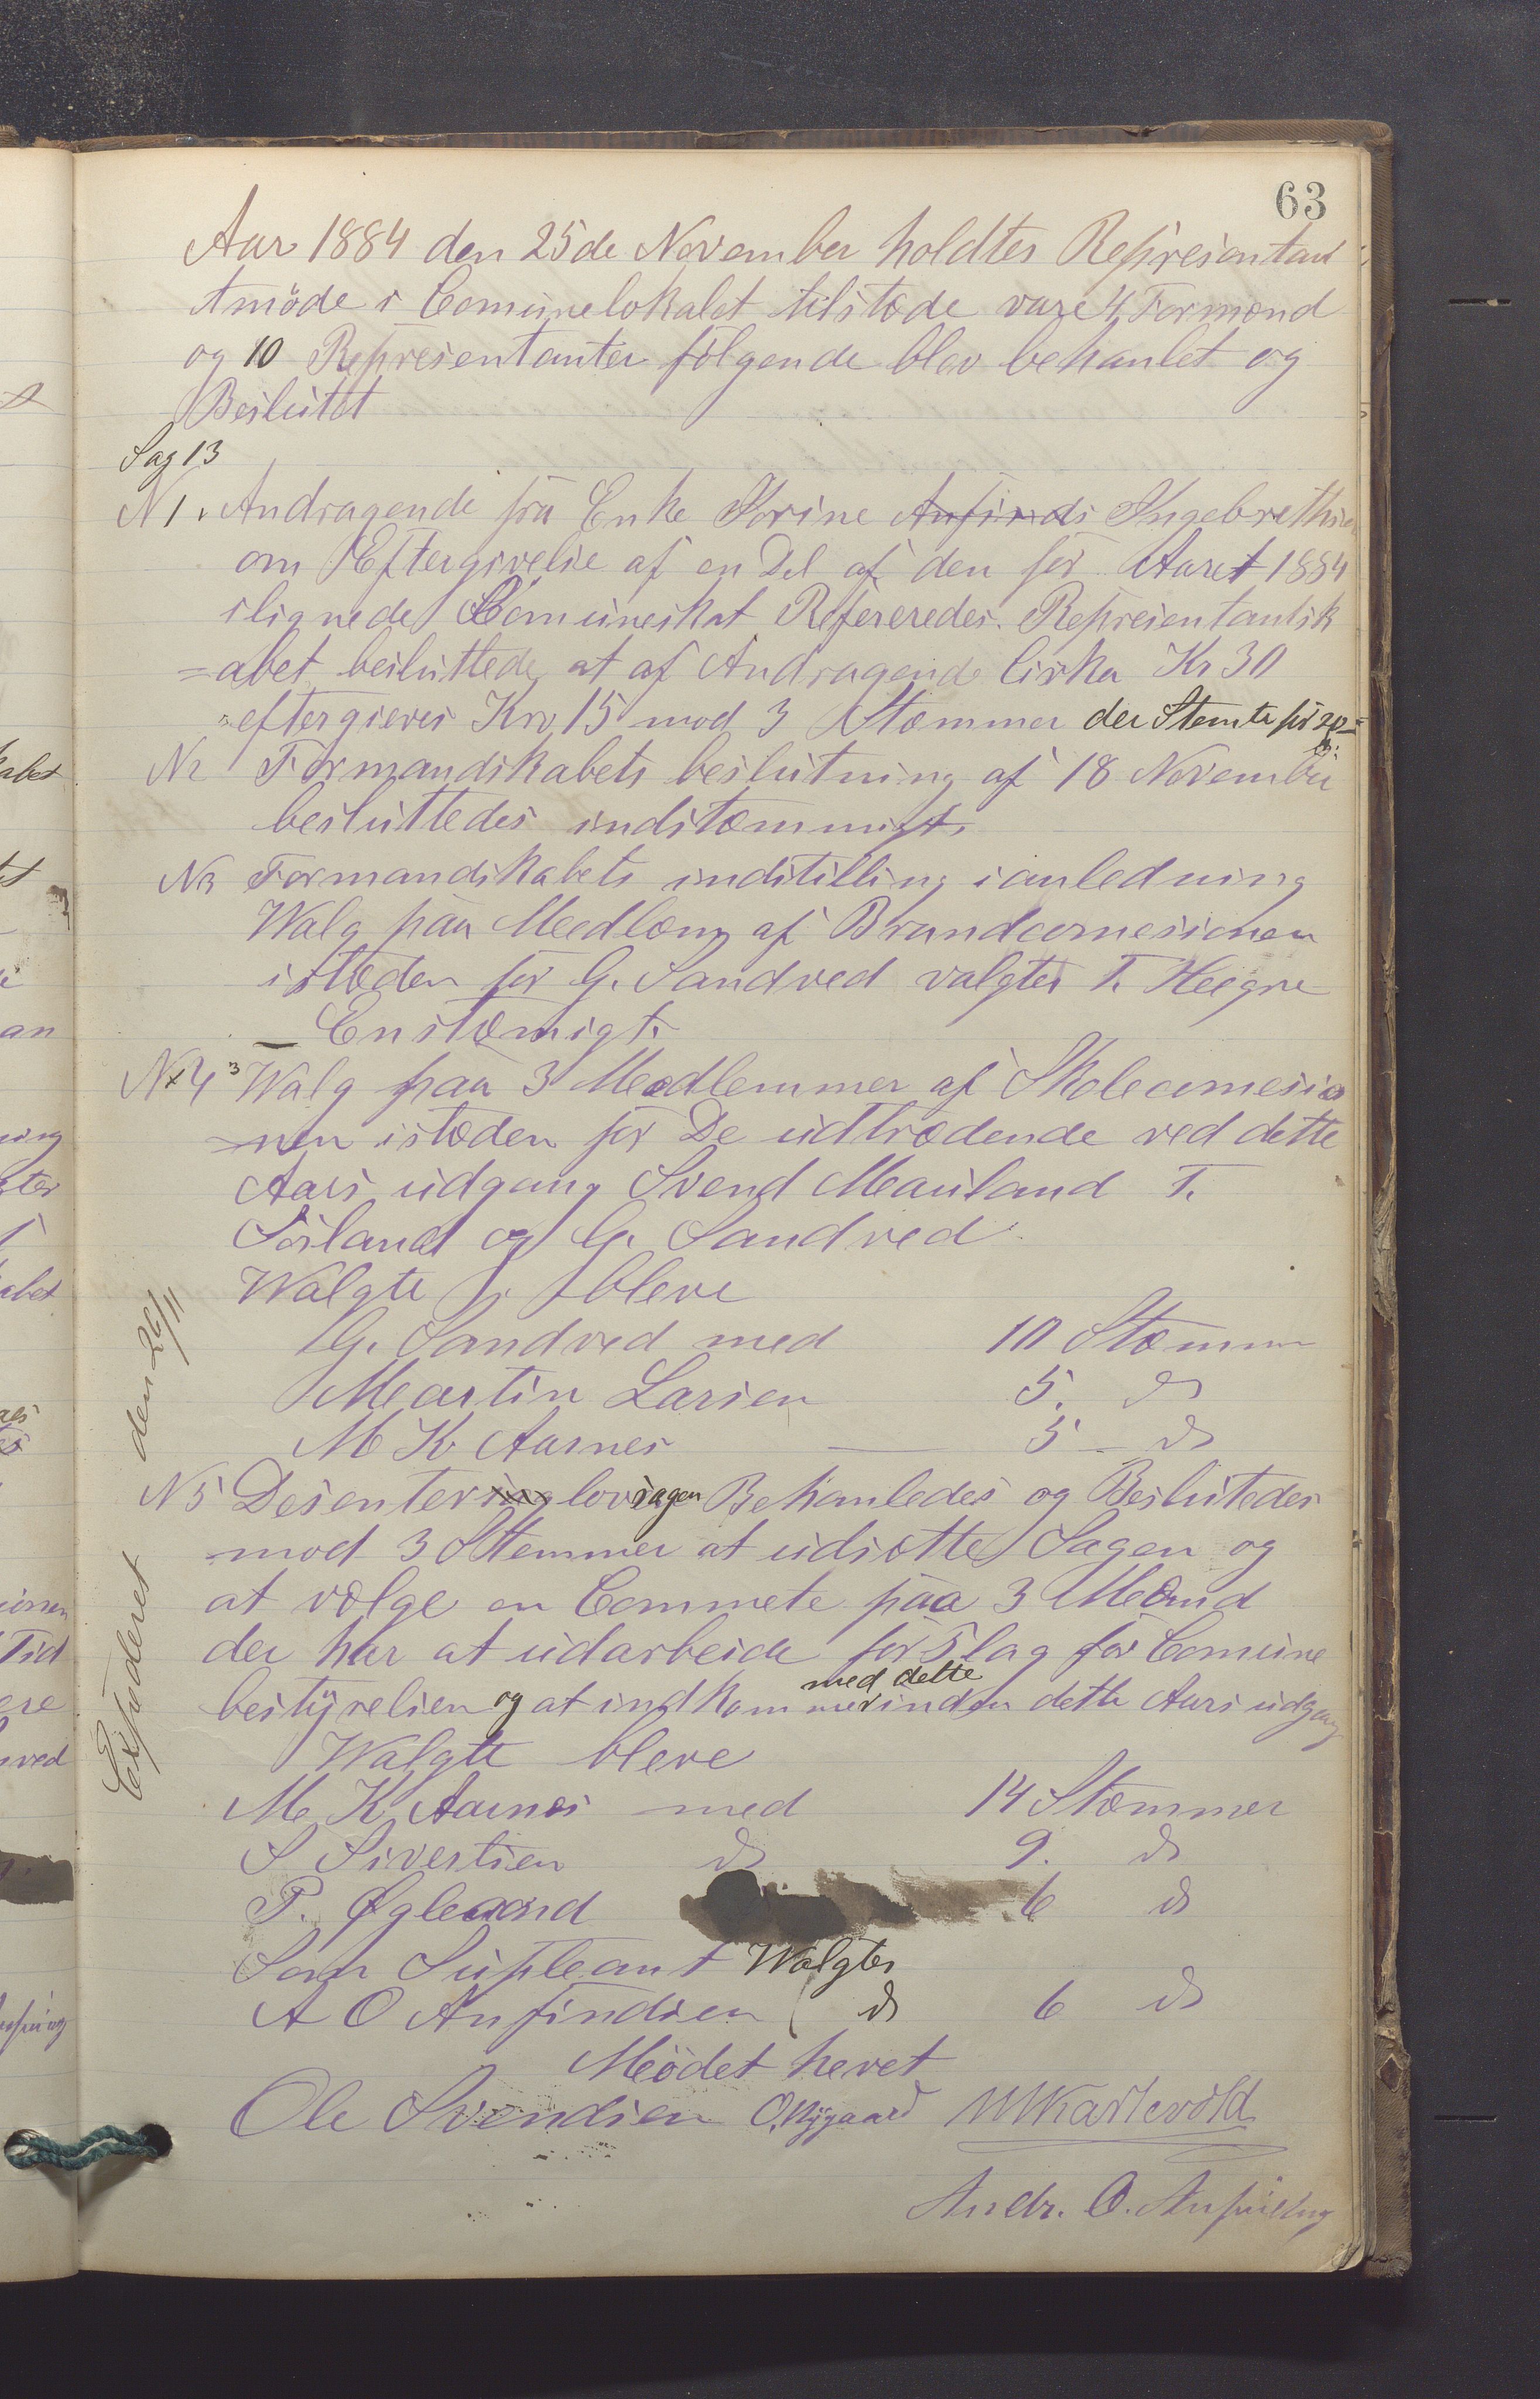 63
Aar 1884 den 25de November holdtes Represontant
tmöde i Comunelokalet tilstæde vare 4 Formænd
og 10 Represontanter fölgende blev behanlet og
Beslutet
Sag 13
N 1. Andragende fra Enke Torine Anfinds Ingebrethsen
om Eftergivelse af en Del af den for Aaret 1884
ilignede Comuneskat Refereredes. Represontantsk
=abet besluttede at af Andragende Cirka Kr 30
eftergieves Kro 15 mod 3 Stæmmer der Stemte for 20 =
N2 Formandskabets beslutning af 18 November
besluttedes indstæmmigt.
N3 Formandskabets indstilling i anledning
Walg paa Meedlæm af Brandcomesionen
istæden for G. Sandved valgtes T. Heigre
Enstæmigt.
N 4 3 Walg paa 3 Meedlemmer af Skolecomesio
nen istæden for De udtrædende ved dette
Aars udgang Svend Mauland T.
Sörland og G. Sandved
Walgte bleve
G. Sandved med 10 Stæmmer
Martin Larsen 5. do
M K Aarnes — 5 — do
N 5 Desentering lovsagen Behanledes og Beslutedes
mod 3 Stemmer at udsætte Sagen og
at vælge en Commete paa 3 Mænd
der har at udarbeide forslag for Comune
med dette
bestÿrelsen og at indkommer inden dette Aars udgang
Walgte bleve
M K Aarnes med 14 Stæmmer
S Sivertsen do 9. do
P. Øgleænd 6 do
Som Supleant Walgtes
A O Anfindsen do 6 do
Mödet hevet
Ole Svendsen O. Nÿgaard M Kartevold
Andr. O.
Expederet den 26/11